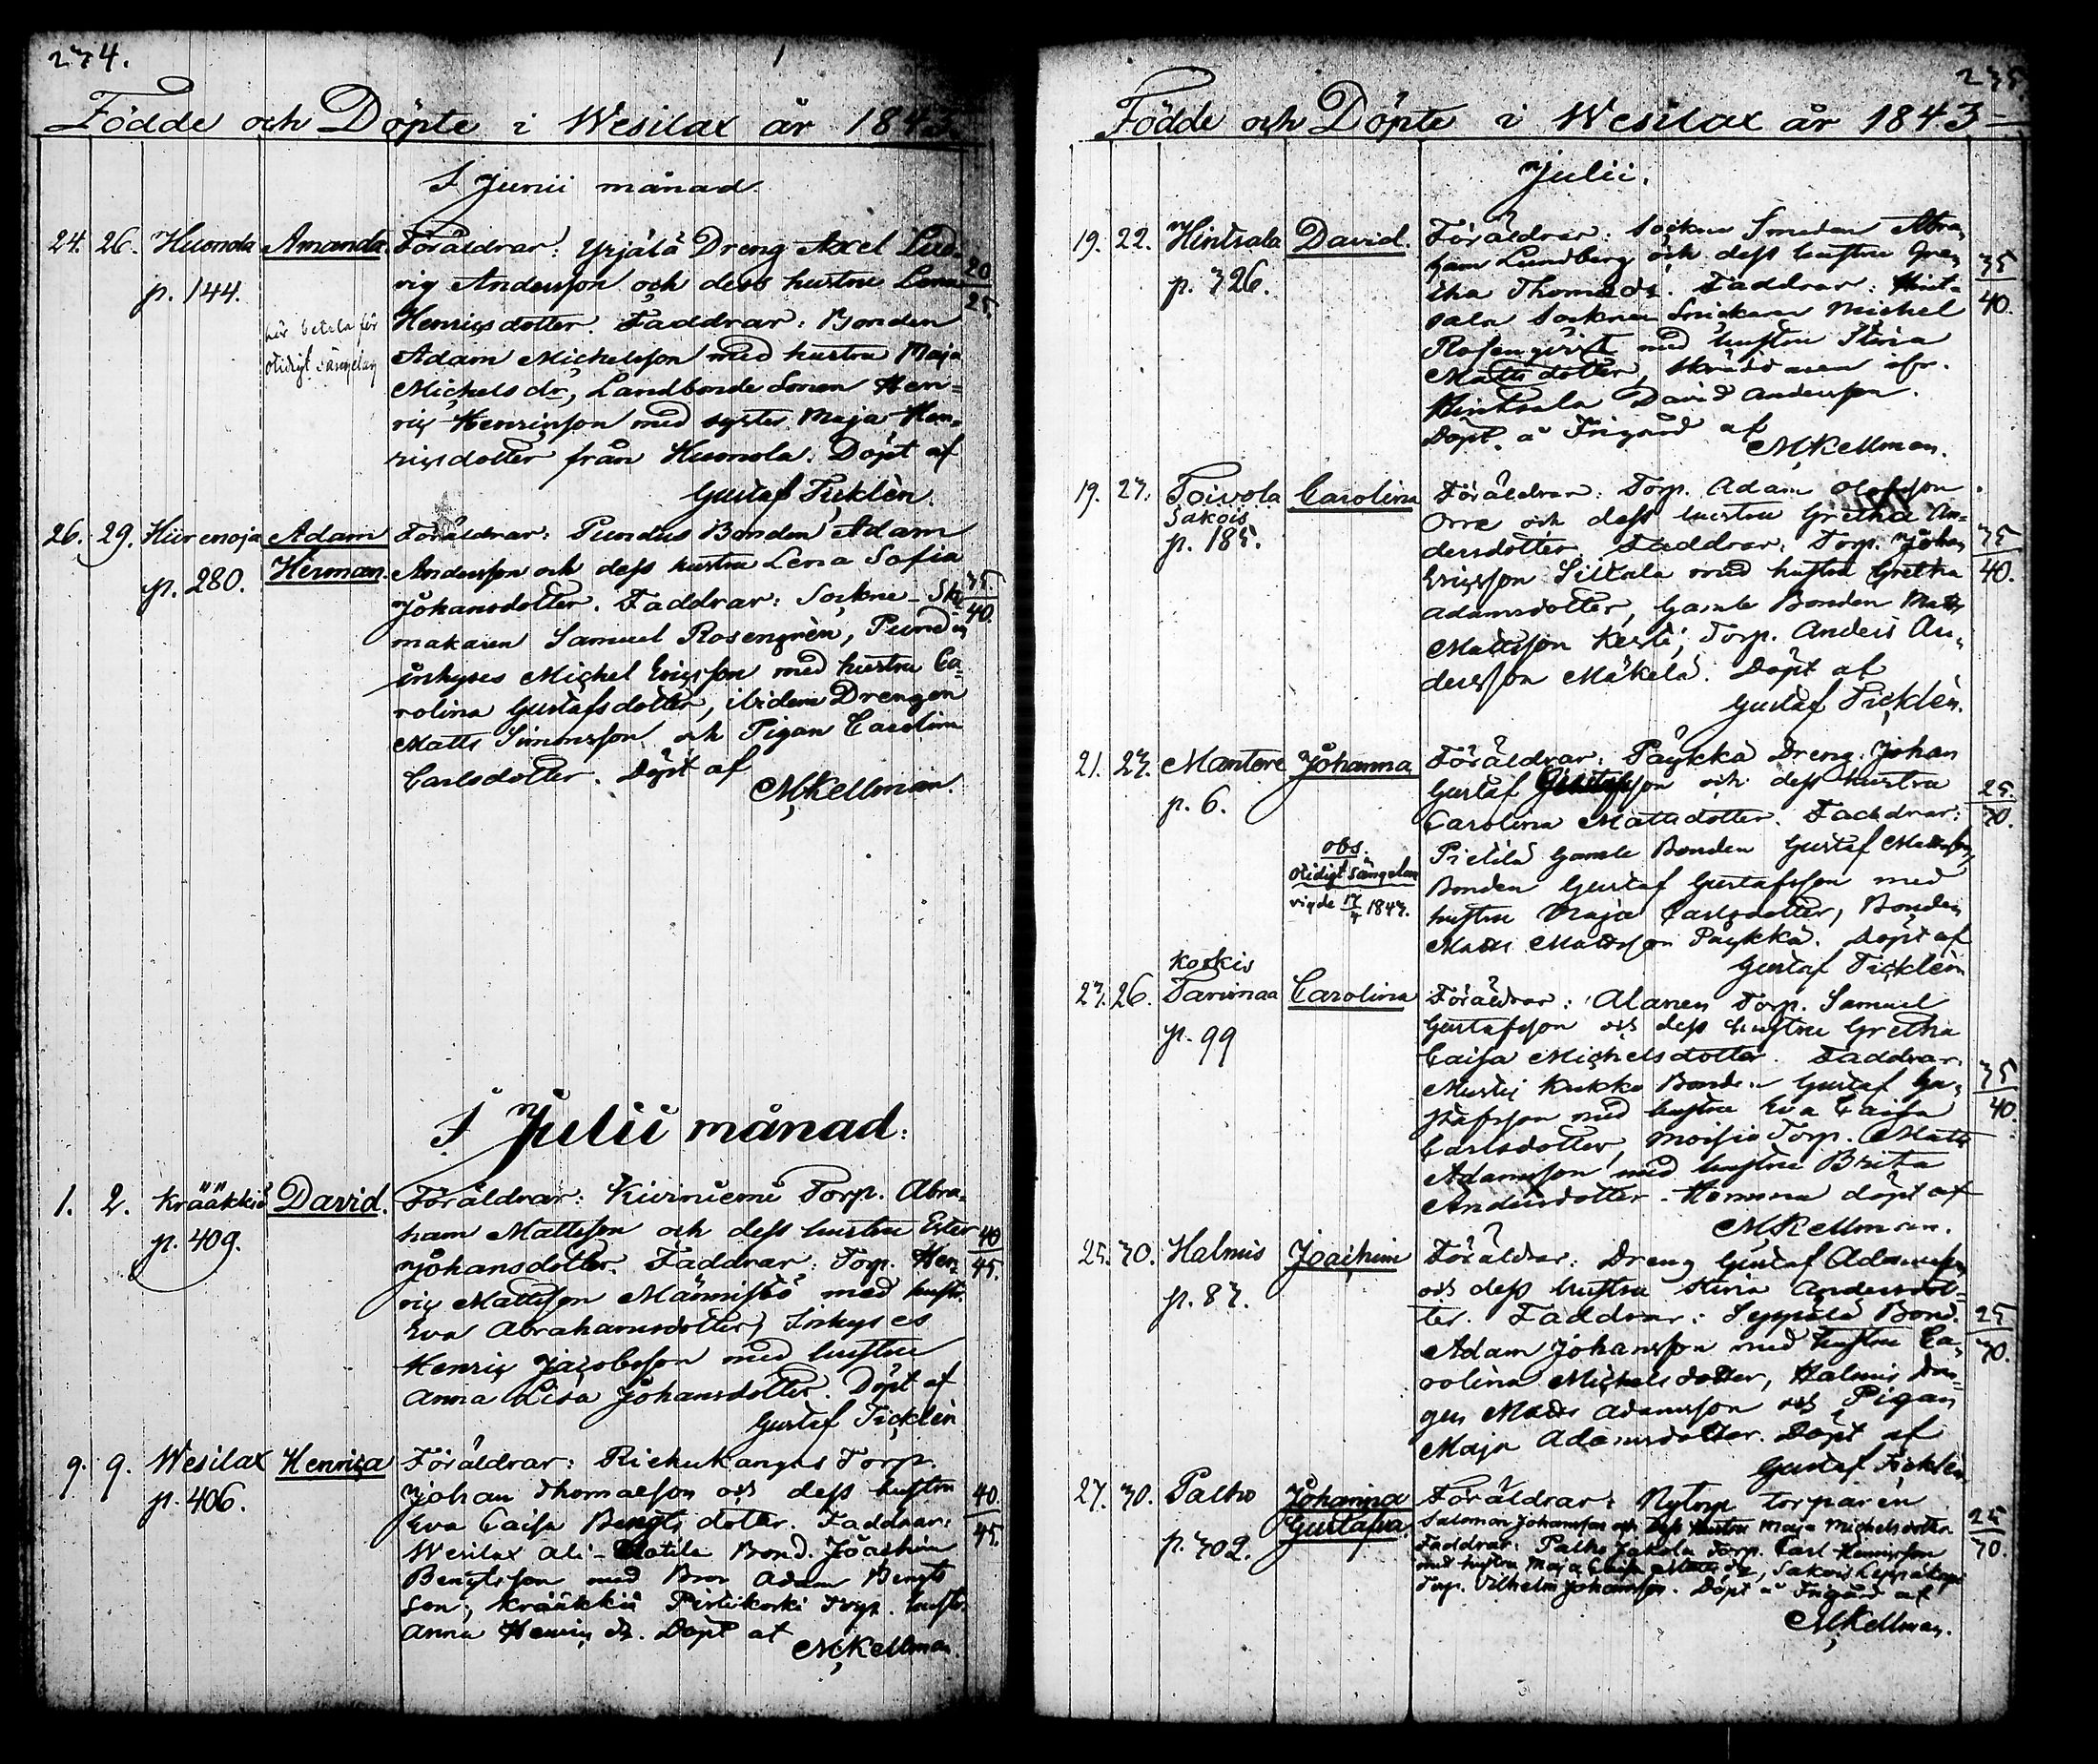 274.
Födde och Döpte i Wesilax år 1843.
I Junii månad
24. 26. Huonola Amanda. Föräldrar: Yrjälä Dreng Axel Lud-
p. 144. vig Andersson och dess hustru Lena 20/25.
Henricsdotter. Faddrar: Bonden
bör betala för
otidigt sängelag
Adam Michelsson med hustru Maja
Michelsdr, Landbonde Sonen Hen=
ric Henricsson med syster Maja Hen-
ricsdotter från Huonola. Döpt af
Gustaf Ticklén.
26. 29. Hiirenoja Adam Föräldrar: Pundus Bonden Adam
p. 280. Herman. Andersson och dess hustru Lena Sofia
Johansdotter. Faddrar: Sockne-Sko 35/40.
makaren Samuel Rosengrén, Pundus
inhyses Michel Ericsson med hustru Ca=
rolina Gustafsdotter, ibidem Drengen
Matts Simonsson och Pigan Carolina
Carlsdotter. Döpt af
MKellman.
I Julii månad:
1. 2. Krääkkiö David. Föräldrar: Kiviniemi Torp. Abra-
p. 409. ham Mattsson och dess hustru Ester 40/45.
Johansdotter. Faddrar: Torp. Hen-
ric Mattsson Männistö med hustr.
Eva Abrahamsdotter, Inhyses
Henric Jacobsson med hustru
Anna Lisa Johansdotter. Döpt af
Gustaf Ticklén
9. 9. Wesilax Henrica Föräldrar: Riehukangas Torp.
p. 406. Johan Thomasson och dess hustru 40./45.
Eva Caisa Bengts dotter. Faddrar:
Wesilax Ali- Bond. Joachim
Bengtsson med Bror Adam Bengts
son, Krääkkiö Pirlikoski Torp. hustr.
Anna Henrics dr. Döpt af
MKellman.
235.
Födde och Döpte i Wesilax år 1843
Julii.
19. 22. Hintsala David. Föräldrar: Sockne Smeden Abra,
p. 326. ham Lundberg och dess hustru Gre, 35/40.
tha Thomasdr. Faddrar: Hint-
sala Sockne Snickare Michel
Rosenqvist med hustru Stina
Matts dotter, Skräddaren ifr.
Hintsala David Andersson.
Döpt å Frigård af
MKellman.
19. 23. Toivola Carolina Föräldrar: Torp. Adam Olofsson
Sakois
p. 185. Orre och dess hustru Gretha An-
dersdotter. Faddrar: Torp. Johan 35/40.
Ericsson Siltala med hustru Gretha
Adamsdotter, Gamle Bonden Matts
Mattsson Kesti, Torp. Anders An-
dersson Mäkelä. Döpt af
Gustaf Ticklén.
21. 23. Mantere Johanna Föräldrar: Päykkä Dreng. Johan
p. 6. Gustaf Gustafsson och dess hustru 25./30.
Carolina Mattsdotter. Faddrar:
obs.
otidigt sängelag
vigde 17/4 1843.
Pietilä Gamle Bonden Gustaf Mattsson,
Bonden Gustaf Gustafsson med
hustru Maja Carlsdotter, Bonden
Matts Mattsson Päykkä. Döpt af
Gustaf Ticklén
Koskis
23. 26. Tarinaa Carolina Föräldrar: Alanen Torp. Samuel
p. 99 Gustafsson och dess hustru Gretha
Caisa Michelsdotter. Faddrar:
Kukko Bonden Gustaf Gu- 35/40.
stafsson med hustru Eva Caisa
Carlsdotter, Moisio Torp. Matts
Adamsson med hustru Brita
Andersdotter. Hemma döpt af
MKellman.
25. 30. Halmis Joachim Föräldrar: Dreng Gustaf Adamsson
p. 83. och dess hustru Stina Andersdot-
ter. Faddrar: Seppälä Bond. 25/30.
Adam Johansson med hustru Ca-
rolina Michelsdotter, Halmis Dren-
gen Matts Adamsson och Pigan
Maja Adamsdotter. Döpt af
Gustaf Ticklén
27. 30. Palho Johanna Föräldrar: Nytorp torparen
p. 302. Gustafva. Salomon Johansson och dess hustru Maja Michelsdotter 25/30.
Faddrar: Palho Jakola Torp. Carl Henricsson
med hustru Maja Caisa Mattsdr, Sakois
Torp. Vilhelm Johansson. Döpt å Frigård af
MKellman.